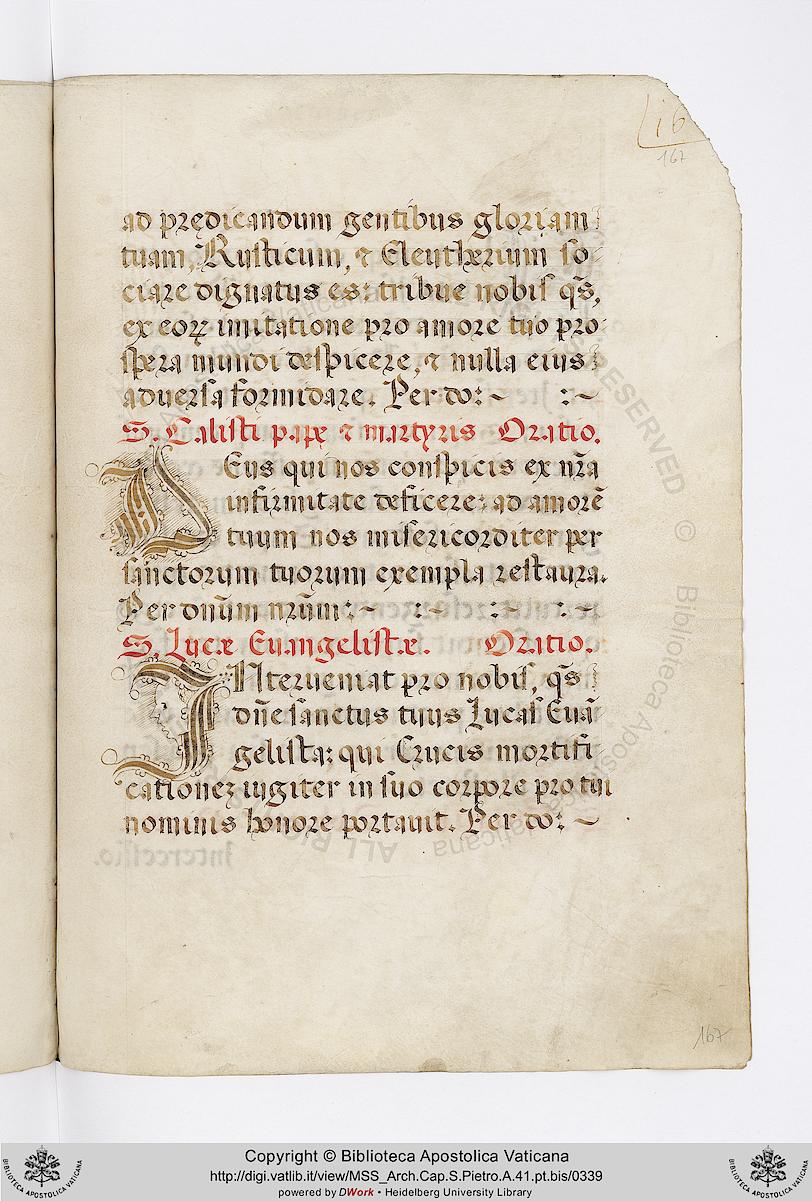 167
ad prędicandum gentibus gloriam
tuam, Rusticum, ⁊ Eleutherium so
ciare dignatus es: tribue nobis qs̄,
ex eoꝝ imitatione pro amore tuo pro
spera mundi despicere, ⁊ nulla eius
aduersa formidare. Per do: ~ : ~
S. Calisti papæ ⁊ martyris Oratio.
DEus qui nos conspicis ex nr̄a
infirmitate deficere: ad amorē
tuum nos misericorditer per
sanctorum tuorum exempla restaura.
Per dnūm nrūm: ~ : ~ : ~ : ~
S. Lucæ Euangelistæ. Oratio.
INterueniat pro nobis, qs̄
dn̄e sanctus tuus Lucas Euā
gelista: qui Crucis mortifi
cationeȝ iugiter in suo corpore pro tui
nominis honore portauit. Per do: ~
167
Copyright © Biblioteca Apostolica Vaticana
http://digi.vatlib.it/view/MSS_Arch.Cap.S.Pietro.A.41.pt.bis/0339
powered by DWork • Heidelberg University Library